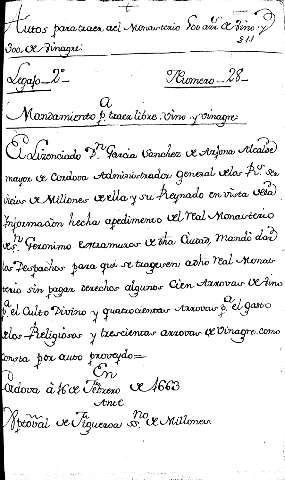 Autos para traer acl Monasterio 500 arrs. de Vino y
300. de Vinagre.
Legajo 2º Numero 28
Mandamiento pª traer libre Vino y Vinagre
El Lizenciado Dn Garcia Sanchez de Arjona Alcalde
mayor de Cordova Administrador general de los Rs. ser
vicios de Millones de ella y su Reynado en vista de la
Informacion hecha a pedimento del Real Monasterio
de Sn. Geronimo extramuros de dha Ciudad, Mandó dar
los Despachos para que se trageren a dho Real Monas
terio sin pagar derechos algunos Cien Arrovas de Vino
pª el Culto Divino y quatrocientas Arrovas pª el gasto
de los Religiosos y trescientas arrovas de Vinagre como
consta por auto proveydo =
En
Cordova à 16 de Febrero de 1663
Ante
Xptoval de Figueroa ssno de Millones